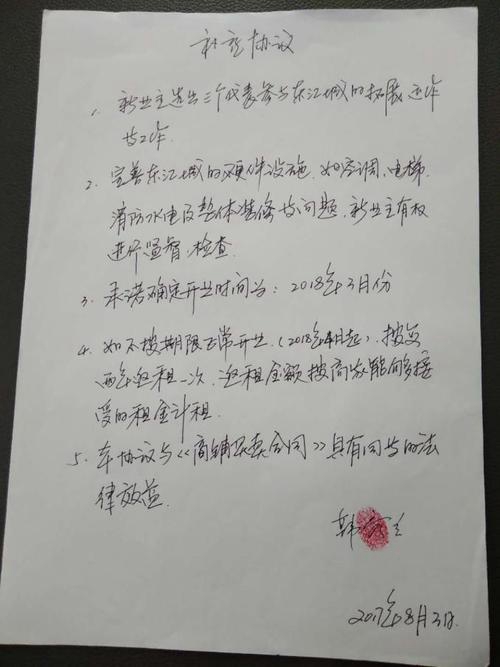 补充协议
1. 新业主选出三个代表参与东江城的拓展运作
与工作.
2. 完善东江城的硬件设施. 如空调、电梯.
消防水电及整体装修与问题. 新业主有权
进行监督.检查.
3. 承诺确定开业时间为: 2018年3月份
4. 如不按期限正常开业.(2018年4月起). 按
两年返租一次. 返租金额按商家能够接
受的租金计租.
5. 本协议与《商铺买卖合同》具有同等的法
律效益.
韩
2017年8月3日.